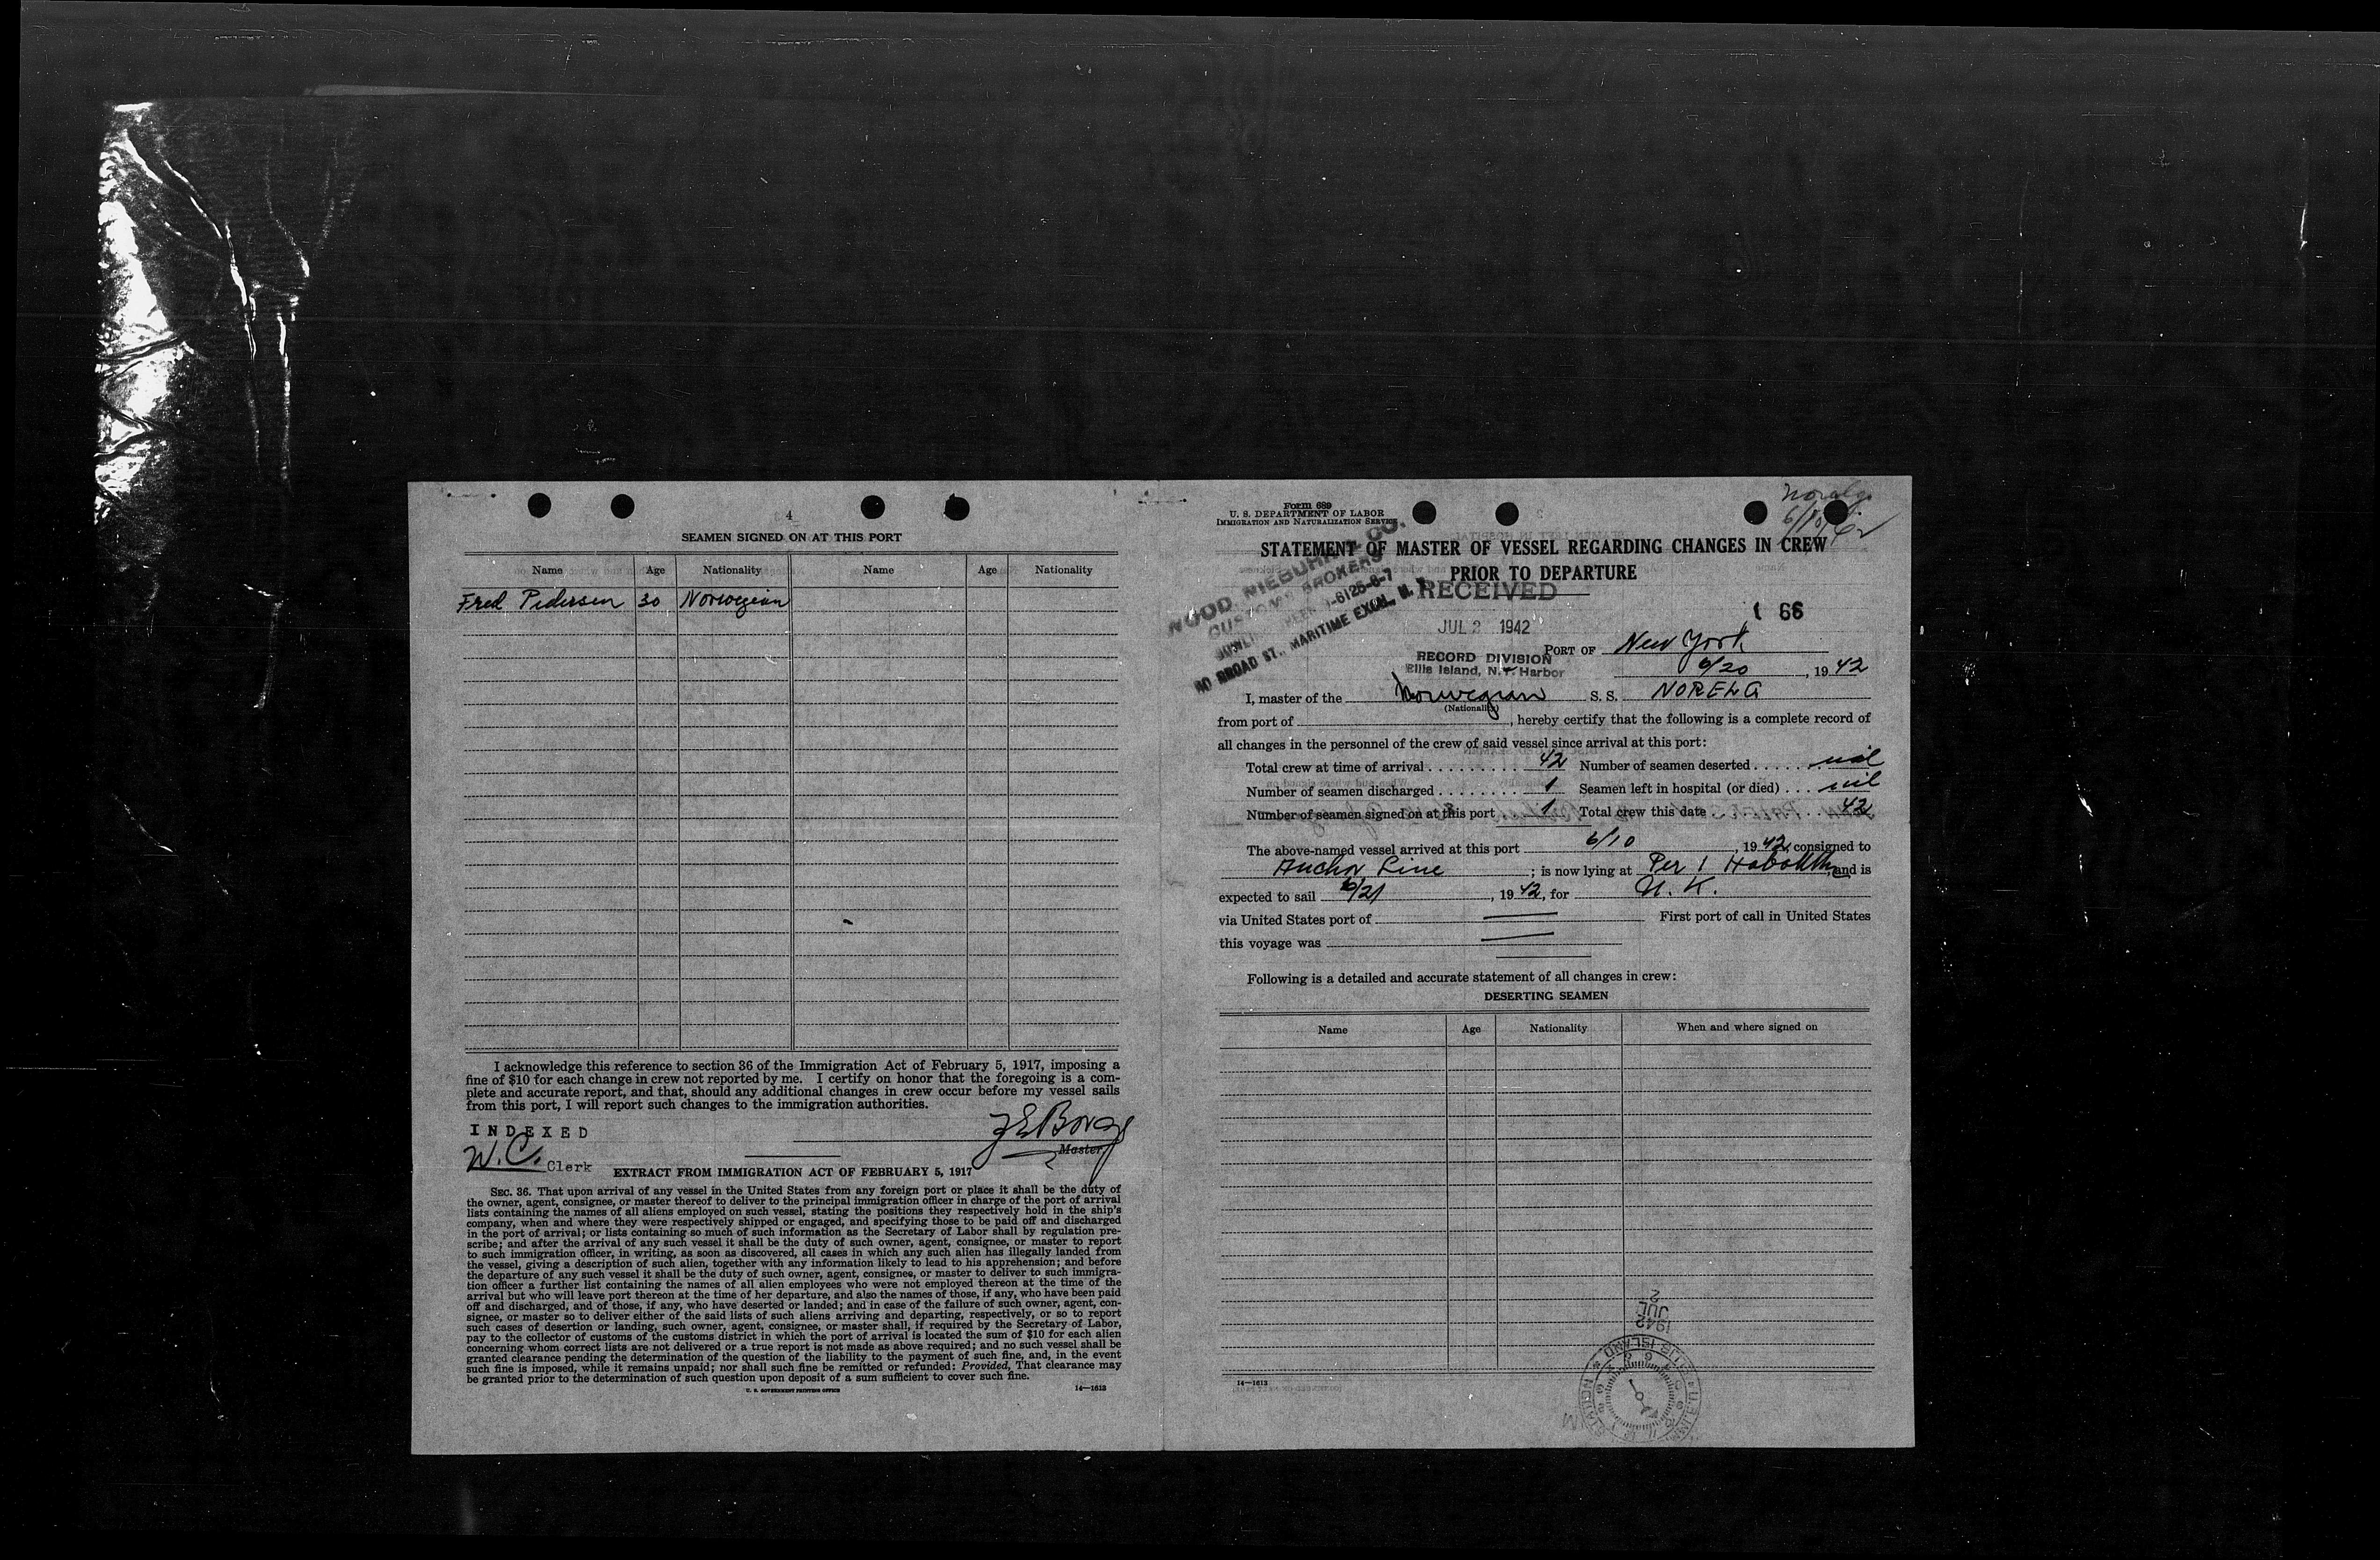 4
SEAMEN SIGNED ON AT THIS PORT
Name Age Nationality Name Age Nationality
Fred Pedersen 30 Norwegian
I acknowledge this reference to section 36 of the Immigration Act of February 5, 1917, imposing a
fine of $10 for each change in crew not reported by me. I certify on honor that the foregoing is a com-
plete and accurate report, and that, should any additional changes in crew occur before my vessel sails
from this port, I will report such changes to the immigration authorities.
INDEXED
W. C. Clerk
Master
EXTRACT FROM IMMIGRATION ACT OF FEBRUARY 5, 1917
SEC. 36. That upon arrival of any vessel in the United States from any foreign port or place it shall be the duty of
the owner, agent, consignee, or master thereof to deliver to the principal immigration officer in charge of the port of arrival
lists containing the names of all aliens employed on such vessel, stating the positions they respectively hold in the ship's
company, when and where they were respectively shipped or engaged, and specifying those to be paid off and discharged
in the port of arrival; or lists containing so much of such information as the Secretary of Labor shall by regulation pre-
scribe; and after the arrival of any such vessel it shall be the duty of such owner, agent, consignee, or master to report
to such immigration officer, in writing, as soon as discovered, all cases in which any such alien has illegally landed from
the vessel, giving a description of such alien, together with any information likely to lead to his apprehension; and before
the departure of any such vessel it shall be the duty of such owner, agent, consignee, or master to deliver to such immigra-
tion officer a further list containing the names of all alien employees who were not employed thereon at the time of the
arrival but who will leave port thereon at the time of her departure, and also the names of those, if any, who have been paid
off and discharged, and of those, if any, who have deserted or landed; and in case of the failure of such owner, agent, con-
signee, or master so to deliver either of the said lists of such aliens arriving and departing, respectively, or so to report
such cases of desertion or landing, such owner, agent, consignee, or master shall, if required by the Secretary of Labor,
pay to the collector of customs of the customs district in which the port of arrival is located the sum of $10 for each alien
concerning whom correct lists are not delivered or a true report is not made as above required; and no such vessel shall be
granted clearance pending the determination of the question of the liability to the payment of such fine, and, in the event
such fine is imposed, while it remains unpaid; nor shall such fine be remitted or refunded: Provided, That clearance may
be granted prior to the determination of such question upon deposit of a sum sufficient to cover such fine.
U. S. GOVERNMENT PRINTING OFFICE 14—1613
Form 689
U. S. DEPARTMENT OF LABOR
IMMIGRATION AND NATURALIZATION SERVICE
STATEMENT OF MASTER OF VESSEL REGARDING CHANGES IN CREW
PRIOR TO DEPARTURE
CUSTOMS BROKERS
BROAD ST., MARITIME EXCH., N. Y.
RECEIVED
JUL 2 1942
RECORD DIVISION
Ellis Island, N.Y. Harbor
66
PORT OF New York
6/20, 1942
I, master of the Norwegian S. S. NORELG
(Nationality)
from port of , hereby certify that the following is a complete record of
all changes in the personnel of the crew of said vessel since arrival at this port:
Total crew at time of arrival 42 Number of seamen deserted nil
Number of seamen discharged 1 Seamen left in hospital (or died) nil
Number of seamen signed on at this port 1 Total crew this date 42
The above-named vessel arrived at this port 6/10, 1942, consigned to
Anchor Line ; is now lying at Per 1 , and is
expected to sail 6/21, 1942, for U. K.
via United States port of First port of call in United States
this voyage was
Following is a detailed and accurate statement of all changes in crew:
DESERTING SEAMEN
Name Age Nationality When and where signed on
14—1613
1942
JUL
2